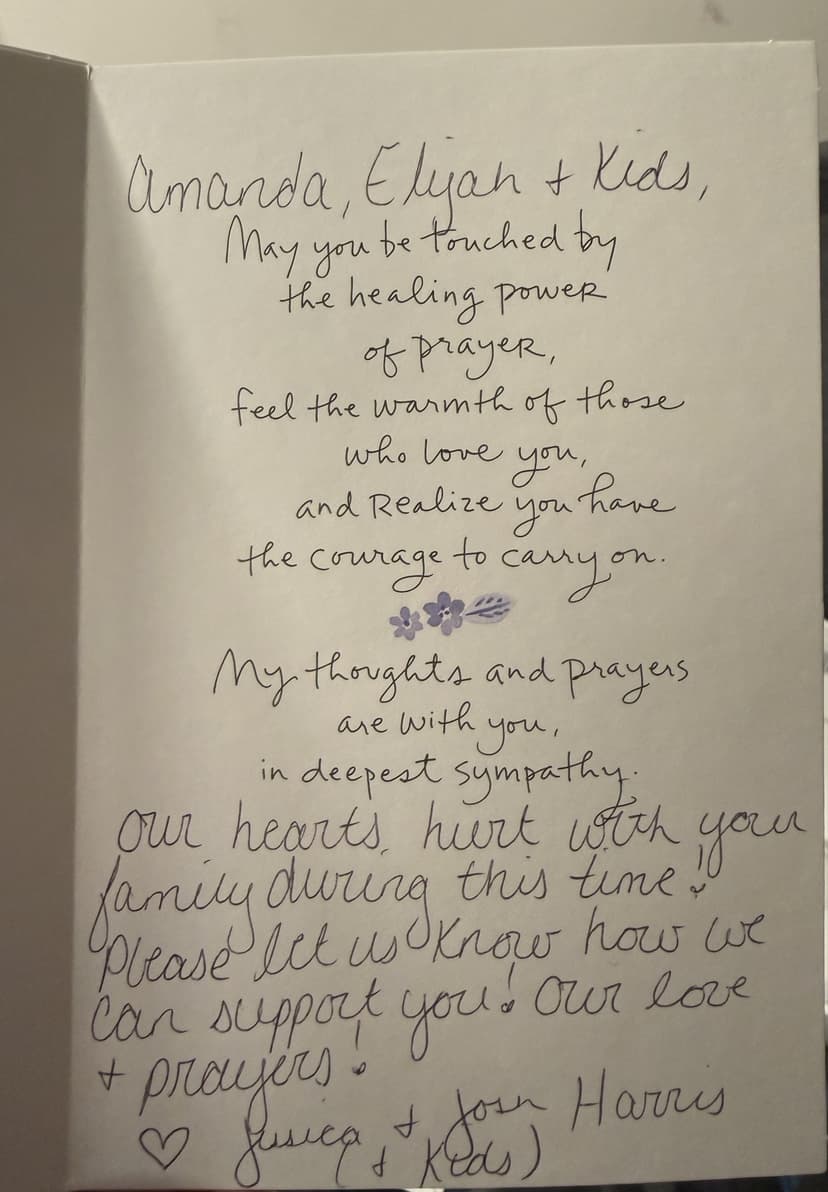 Amanda, Elijah + Kids,
May you be touched by
the healing power
of prayer,
feel the warmth of those
who love you,
and Realize you have
the courage to carry on.
My thoughts and prayers
are with you,
in deepest sympathy.
Our hearts hurt with your
family during this time!
Please let us know how we
can support you! Our love
+ prayers!
♡ Jessica + Josh Harris
(+ Kids)